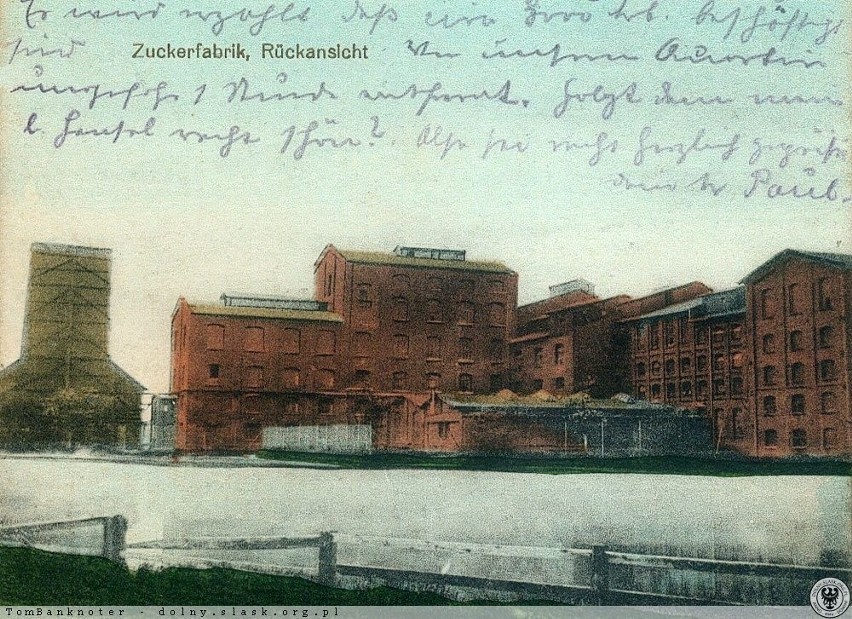 Er wird erzählt daß eine beschäftigt
sind
Zuckerfabrik, Rückansicht
Von unserm
ungefähr 1 Stunde entfernt. Folgt denn mein
l. Hansel recht schön? Also sei recht herzlich gegrüßt
dein Paul.
TomBanknoter - dolny.slask.org.pl